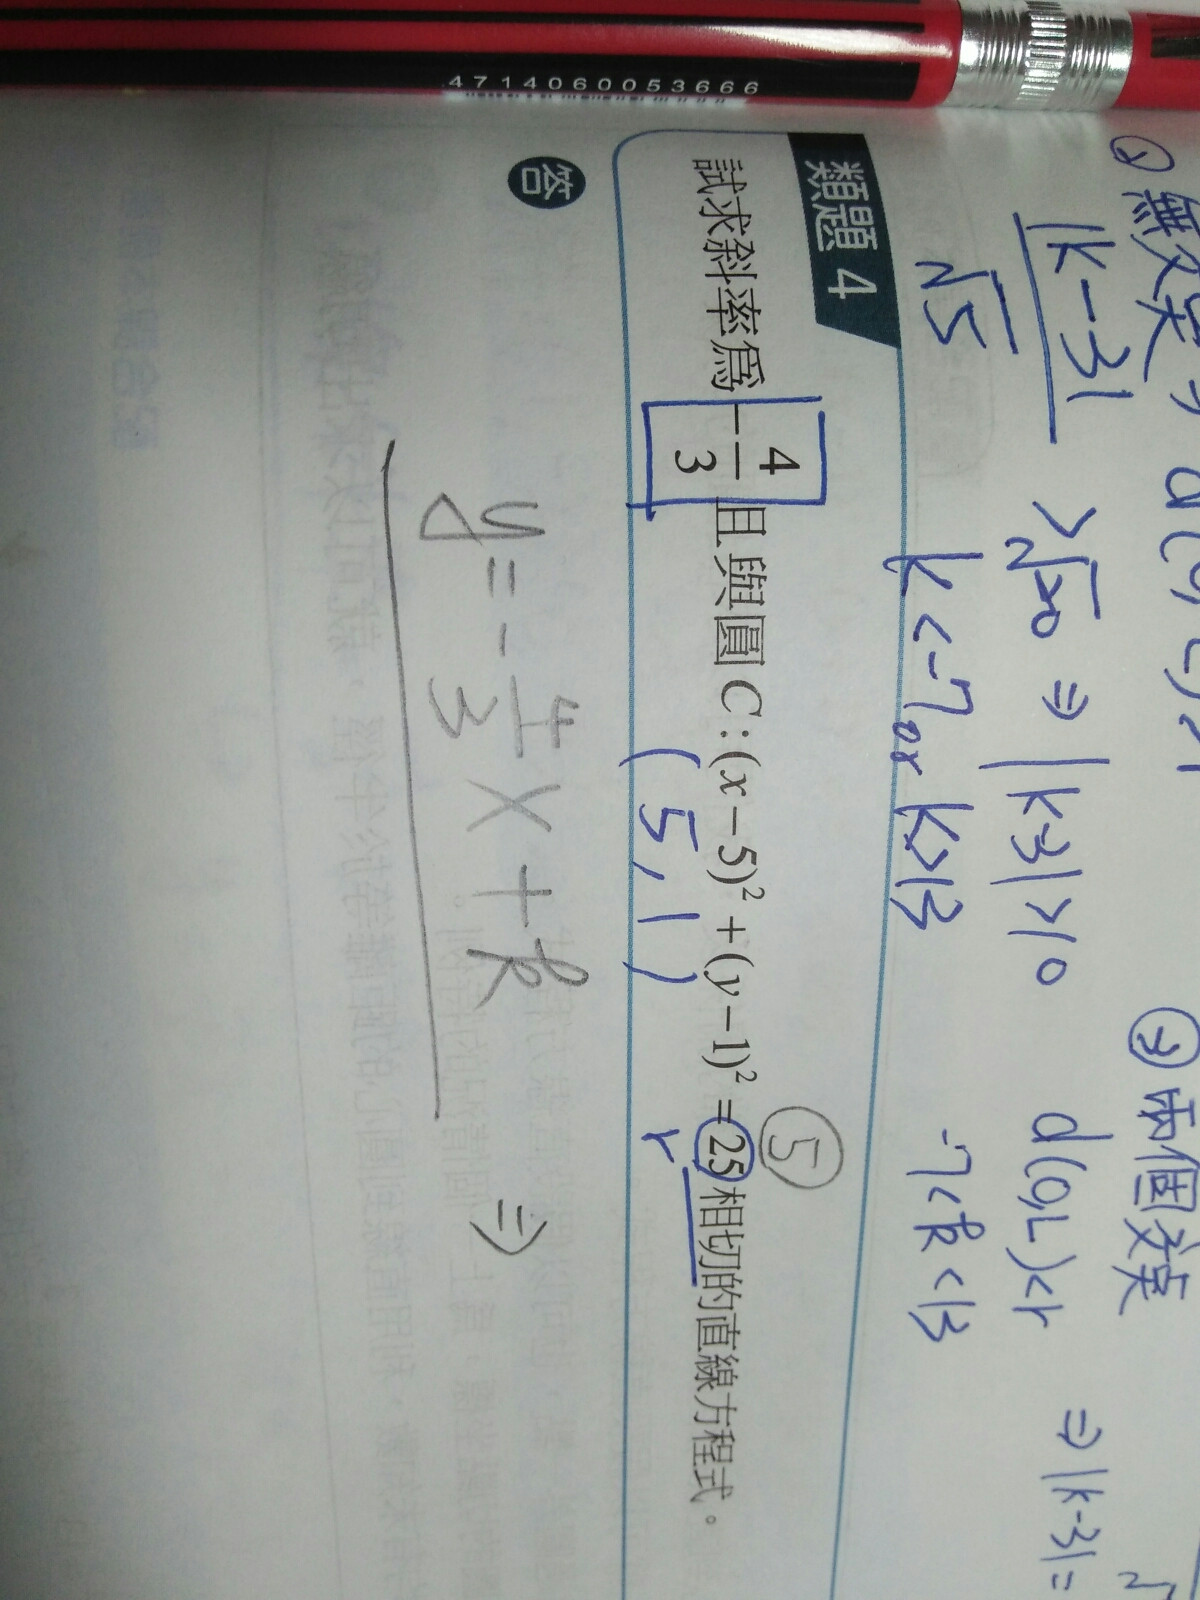 4714060053666
② 無交点
|k-3|
√5
>√20 ⇒ |k-3|>10
k<-7 or k>13
③ 兩個交点
d(O,L)<r
⇒|k-3|=
-7<k<13
類題 4
試求斜率為 -4/3 且與圓 C:(x-5)²+(y-1)²=25相切的直線方程式。
⑤
(5,1)
r
答
y=-4/3x+k
⇒